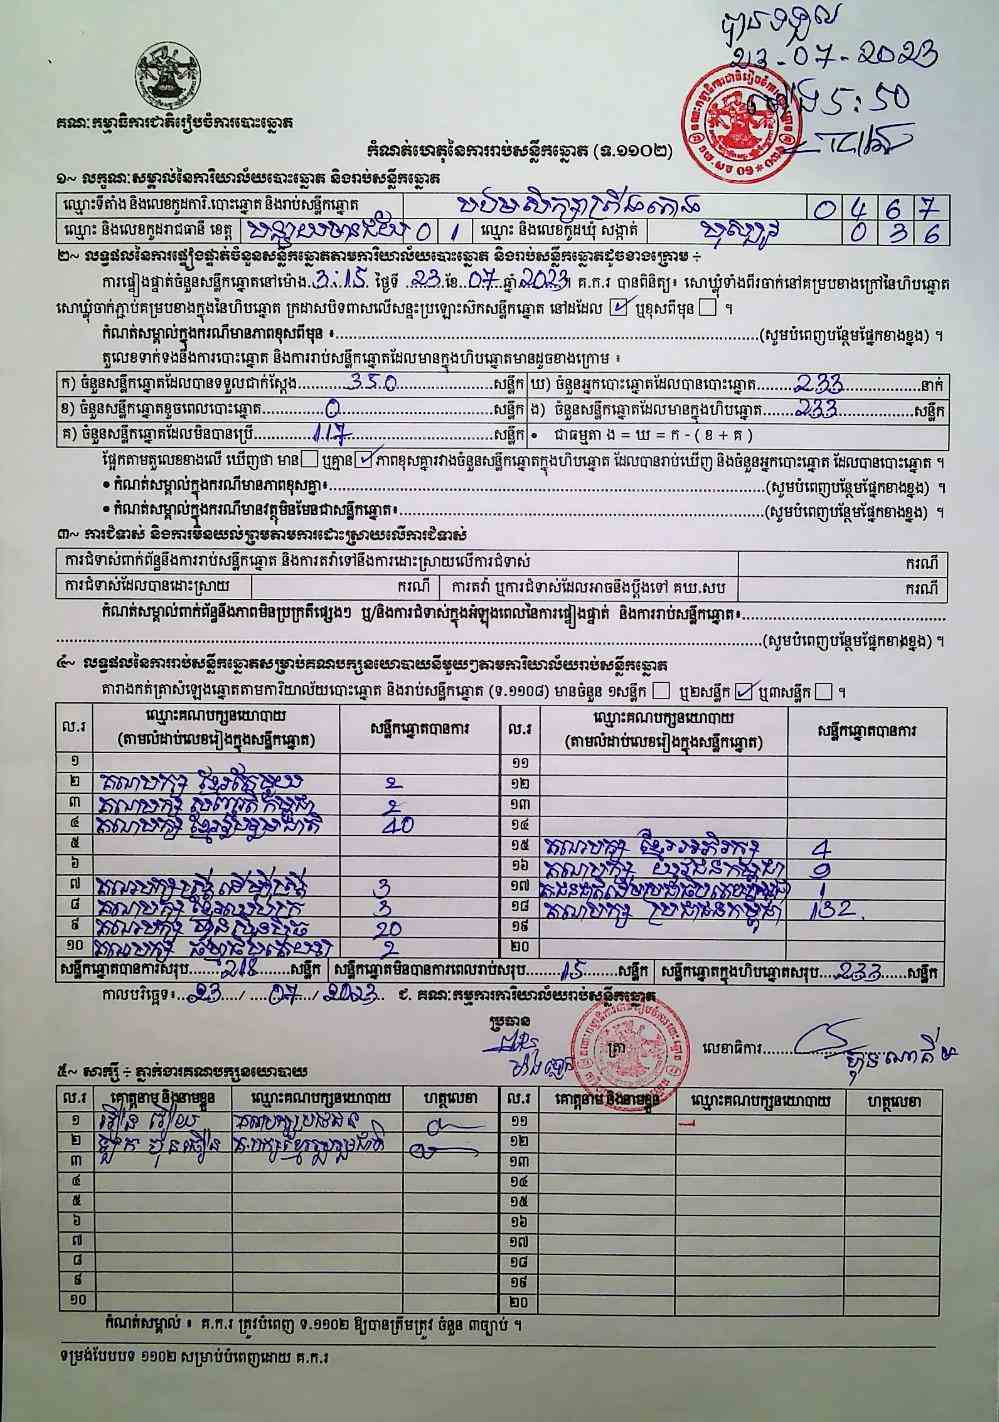 បានទទួល
23-07-2023
ម៉ោង 5:50
គណៈកម្មាធិការជាតិរៀបចំការបោះឆ្នោត
កំណត់ហេតុនៃការរាប់សន្លឹកឆ្នោត (ទ.១១០២)
១~ លក្ខណៈសម្គាល់នៃការិយាល័យបោះឆ្នោត និងរាប់សន្លឹកឆ្នោត
ឈ្មោះទីតាំង និងលេខកូដការិ.បោះឆ្នោត និងរាប់សន្លឹកឆ្នោត 0 4 6 7
ឈ្មោះ និងលេខកូដរាជធានី ខេត្ត បន្ទាយមានជ័យ 0 1 ឈ្មោះ និងលេខកូដឃុំ សង្កាត់ 0 3 6
២~ លទ្ធផលនៃការផ្ទៀងផ្ទាត់ចំនួនសន្លឹកឆ្នោតតាមការិយាល័យបោះឆ្នោត និងរាប់សន្លឹកឆ្នោតដូចខាងក្រោម ÷
ការផ្ទៀងផ្ទាត់ចំនួនសន្លឹកឆ្នោតនៅម៉ោង 3:15 ថ្ងៃទី 23 ខែ 07 ឆ្នាំ 2023 គ.ក.រ បានពិនិត្យ៖ សោឃ្លុំទាំងពីរចាក់នៅគម្របខាងក្រៅនៃហិបឆ្នោត
សោឃ្លុំចាក់ភ្ជាប់គម្របខាងក្នុងនៃហិបឆ្នោត ក្រដាសបិទពាសលើសន្ទះប្រឡោះស៊កសន្លឹកឆ្នោត នៅដដែល ☑ ឬខុសពីមុន ☐ ។
កំណត់សម្គាល់ក្នុងករណីមានភាពខុសពីមុន ៖ (សូមបំពេញបន្ថែមផ្នែកខាងខ្នង) ។
តួលេខទាក់ទងនឹងការបោះឆ្នោត និងការរាប់សន្លឹកឆ្នោតដែលមានក្នុងហិបឆ្នោតមានដូចខាងក្រោម ៖
ក) ចំនួនសន្លឹកឆ្នោតដែលបានទទួលជាក់ស្តែង 350 សន្លឹក ឃ) ចំនួនអ្នកបោះឆ្នោតដែលបានបោះឆ្នោត 233 នាក់
ខ) ចំនួនសន្លឹកឆ្នោតខូចពេលបោះឆ្នោត 0 សន្លឹក ង) ចំនួនសន្លឹកឆ្នោតដែលមានក្នុងហិបឆ្នោត 233 សន្លឹក
គ) ចំនួនសន្លឹកឆ្នោតដែលមិនបានប្រើ 117 សន្លឹក • ជាធម្មតា ង = ឃ = ក - ( ខ + គ )
ផ្អែកតាមតួលេខខាងលើ ឃើញថា មាន ☐ ឬគ្មាន ☑ ភាពខុសគ្នារវាងចំនួនសន្លឹកឆ្នោតក្នុងហិបឆ្នោត ដែលបានរាប់ឃើញ និងចំនួនអ្នកបោះឆ្នោត ដែលបានបោះឆ្នោត ។
• កំណត់សម្គាល់ក្នុងករណីមានភាពខុសគ្នា៖ (សូមបំពេញបន្ថែមផ្នែកខាងខ្នង) ។
• កំណត់សម្គាល់ក្នុងករណីមានវត្ថុមិនមែនជាសន្លឹកឆ្នោត៖ (សូមបំពេញបន្ថែមផ្នែកខាងខ្នង) ។
៣~ ការជំទាស់ និងការមិនយល់ព្រមតាមការដោះស្រាយលើការជំទាស់
ការជំទាស់ពាក់ព័ន្ធនឹងការរាប់សន្លឹកឆ្នោត និងការតវ៉ាទៅនឹងការដោះស្រាយលើការជំទាស់ ករណី
ការជំទាស់ដែលបានដោះស្រាយ ករណី ការតវ៉ា ឬការជំទាស់ដែលអាចនឹងប្តឹងទៅ គឃ.សប ករណី
កំណត់សម្គាល់ពាក់ព័ន្ធនឹងភាពមិនប្រក្រតីផ្សេងៗ ឬ/និងការជំទាស់ក្នុងអំឡុងពេលនៃការផ្ទៀងផ្ទាត់ និងការរាប់សន្លឹកឆ្នោត៖
(សូមបំពេញបន្ថែមផ្នែកខាងខ្នង) ។
៤~ លទ្ធផលនៃការរាប់សន្លឹកឆ្នោតសម្រាប់គណបក្សនយោបាយនីមួយៗតាមការិយាល័យរាប់សន្លឹកឆ្នោត
តារាងកត់ត្រាសំឡេងឆ្នោតតាមការិយាល័យបោះឆ្នោត និងរាប់សន្លឹកឆ្នោត (ទ.១១០៨) មានចំនួន ១សន្លឹក ☐ ឬ២សន្លឹក ☑ ឬ៣សន្លឹក ☐ ។
ល.រ ឈ្មោះគណបក្សនយោបាយ (តាមលំដាប់លេខរៀងក្នុងសន្លឹកឆ្នោត) សន្លឹកឆ្នោតបានការ ល.រ ឈ្មោះគណបក្សនយោបាយ (តាមលំដាប់លេខរៀងក្នុងសន្លឹកឆ្នោត) សន្លឹកឆ្នោតបានការ
១ ១១
២ គណបក្ស ខ្មែរតែមួយ 2 ១២
៣ គណបក្ស សញ្ជាតិកម្ពុជា 2 ១៣
៤ គណបក្ស ខ្មែររួបរួមជាតិ 40 ១៤
៥ ១៥ គណបក្ស ខ្មែរអភិរក្ស 4
៦ ១៦ គណបក្ស យុវជនកម្ពុជា 9
៧ គណបក្ស ស្ត្រីដើម្បីស្ត្រី 3 ១៧ 1
៨ គណបក្ស ខ្មែរឈប់ក្រ 3 ១៨ គណបក្ស ប្រជាជនកម្ពុជា 132
៩ គណបក្ស ហ្វ៊ុនស៊ិនប៉ិច 20 ១៩
១០ គណបក្ស ធម្មាធិបតេយ្យ 2 ២០
សន្លឹកឆ្នោតបានការសរុប 218 សន្លឹក សន្លឹកឆ្នោតមិនបានការពេលរាប់សរុប 15 សន្លឹក សន្លឹកឆ្នោតក្នុងហិបឆ្នោតសរុប 233 សន្លឹក
កាលបរិច្ឆេទ៖ 23 / 07 / 2023 ជ. គណៈកម្មការការិយាល័យរាប់សន្លឹកឆ្នោត
ប្រធាន ត្រា លេខាធិការ
៥~ សាក្សី ÷ ភ្នាក់ងារគណបក្សនយោបាយ
ល.រ គោត្តនាម និងនាមខ្លួន ឈ្មោះគណបក្សនយោបាយ ហត្ថលេខា ល.រ គោត្តនាម និងនាមខ្លួន ឈ្មោះគណបក្សនយោបាយ ហត្ថលេខា
១ គណបក្សប្រជាជន ១១
២ គ.បក្សខ្មែររួបរួមជាតិ ១២
៣ ១៣
៤ ១៤
៥ ១៥
៦ ១៦
៧ ១៧
៨ ១៨
៩ ១៩
១០ ២០
កំណត់សម្គាល់ ៖ គ.ក.រ ត្រូវបំពេញ ទ.១១០២ ឱ្យបានត្រឹមត្រូវ ចំនួន ៣ច្បាប់ ។
ទម្រង់បែបបទ ១១០២ សម្រាប់បំពេញដោយ គ.ក.រ